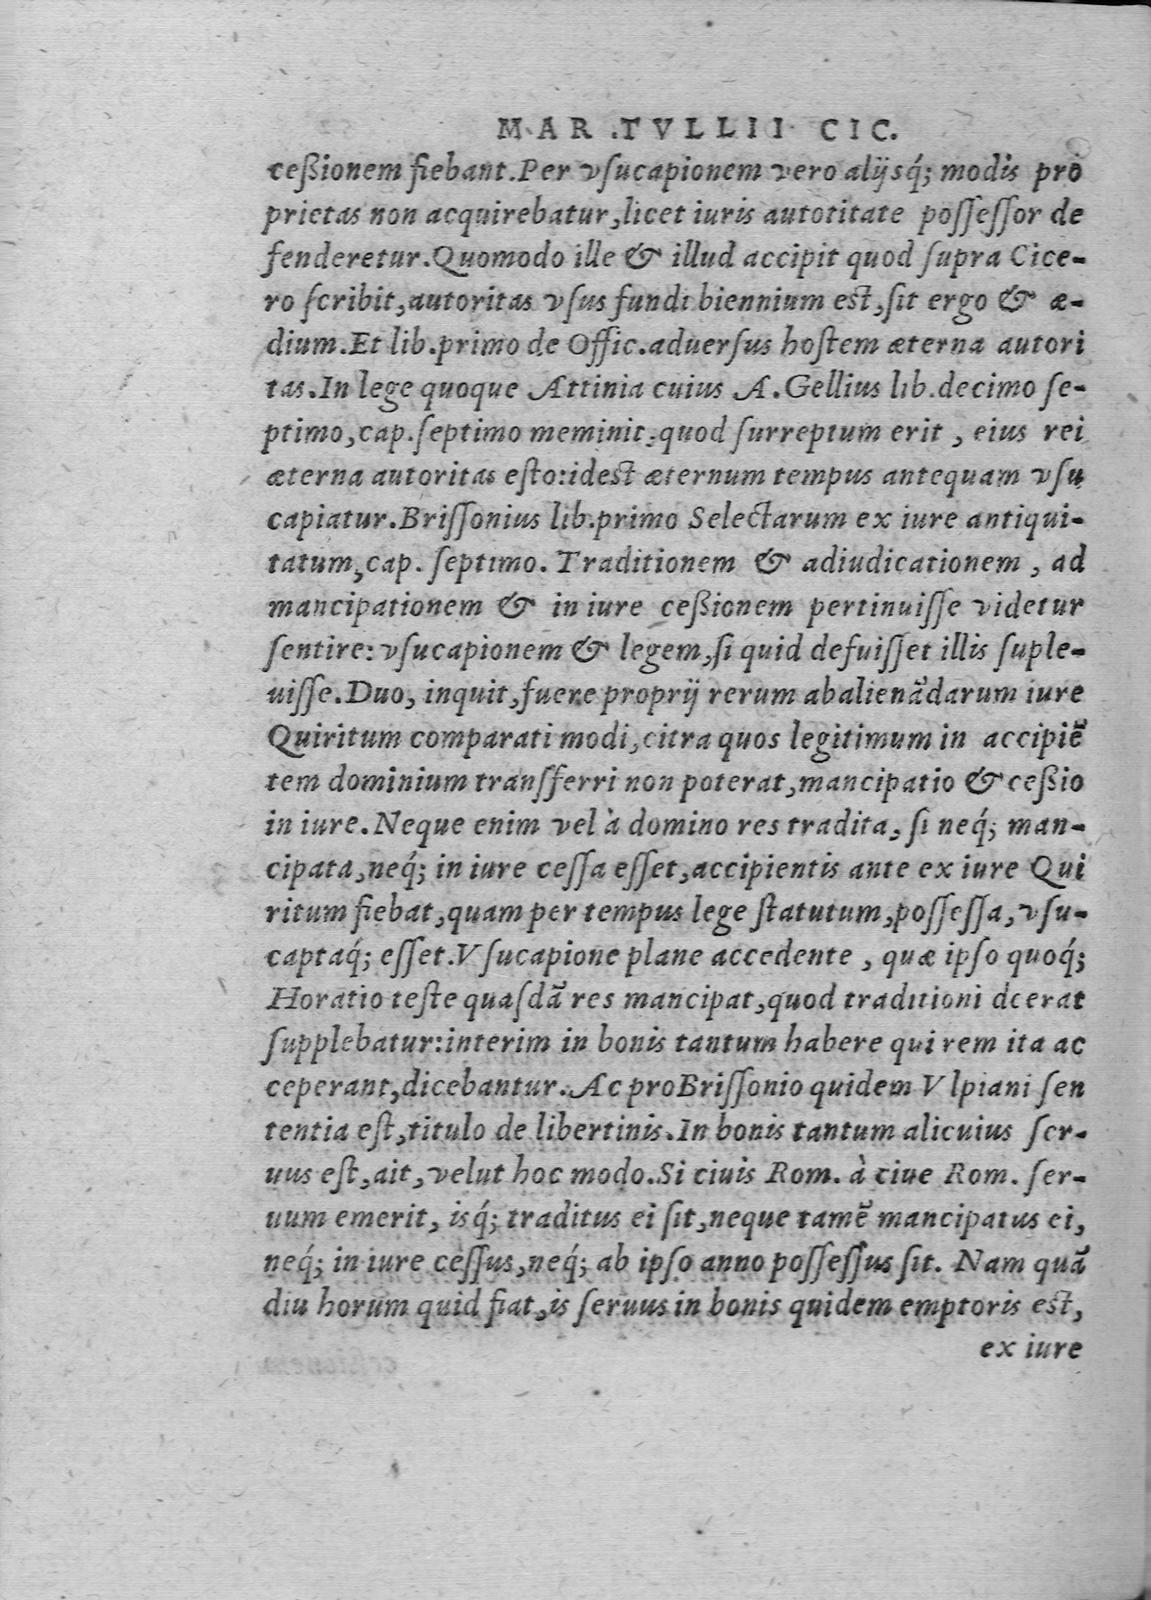 MAR.TVLLII CIC.
ceßionem fiebant.Per vſucapionem vero alijsq́; modis pro
prietas non acquirebatur,licet iuris autotitate poſſeſſor de
fenderetur.Quomodo ille & illud accipit quod ſupra Cice-
ro ſcribit,autoritas vſus fundi biennium est,ſit ergo & æ-
dium.Et lib.primo de Offic.aduerſus hoſtem æterna autori
tas.In lege quoque Attinia cuius A.Gellius lib.decimo ſe-
ptimo,cap.ſeptimo meminit:quod ſurreptum erit , eius rei
æterna autoritas eſto:idest æternum tempus antequam vſu
capiatur.Briſſonius lib.primo Selectarum ex iure antiqui-
tatum,cap. ſeptimo. Traditionem & adiudicationem , ad
mancipationem & in iure ceßionem pertinuiſſe videtur
ſentire: vſucapionem & legem,ſi quid defuiſſet illis ſuple-
uiſſe.Duo, inquit,fuere proprij rerum abalienãdarum iure
Quiritum comparati modi,citra quos legitimum in accipiẽ
tem dominium tranſferri non poterat,mancipatio & ceßio
in iure.Neque enim vel à domino res tradita, ſi neq́; man-
cipata,neq́; in iure ceſſa eſſet,accipientis ante ex iure Qui
ritum fiebat,quam per tempus lege ſtatutum,poſſeſſa,vſu-
captaq́; eſſet.Vſucapione plane accedente , quæ ipſo quoq́;
Horatio teſte quaſdã res mancipat,quod traditioni deerat
ſupplebatur:interim in bonis tantum habere qui rem ita ac
ceperant,dicebantur. Ac pro Briſſonio quidem Vlpiani ſen
tentia eſt,titulo de libertinis.In bonis tantum alicuius ſer-
uus eſt,ait,velut hoc modo.Si ciuis Rom. à ciue Rom. ſer-
uum emerit, isq́; traditus ei ſit,neque tamẽ mancipatus ei,
neq́; in iure ceſſus,neq́; ab ipſo anno poſſeſſus ſit. Nam quã
diu horum quid fiat,is ſeruus in bonis quidem emptoris est,
ex iure